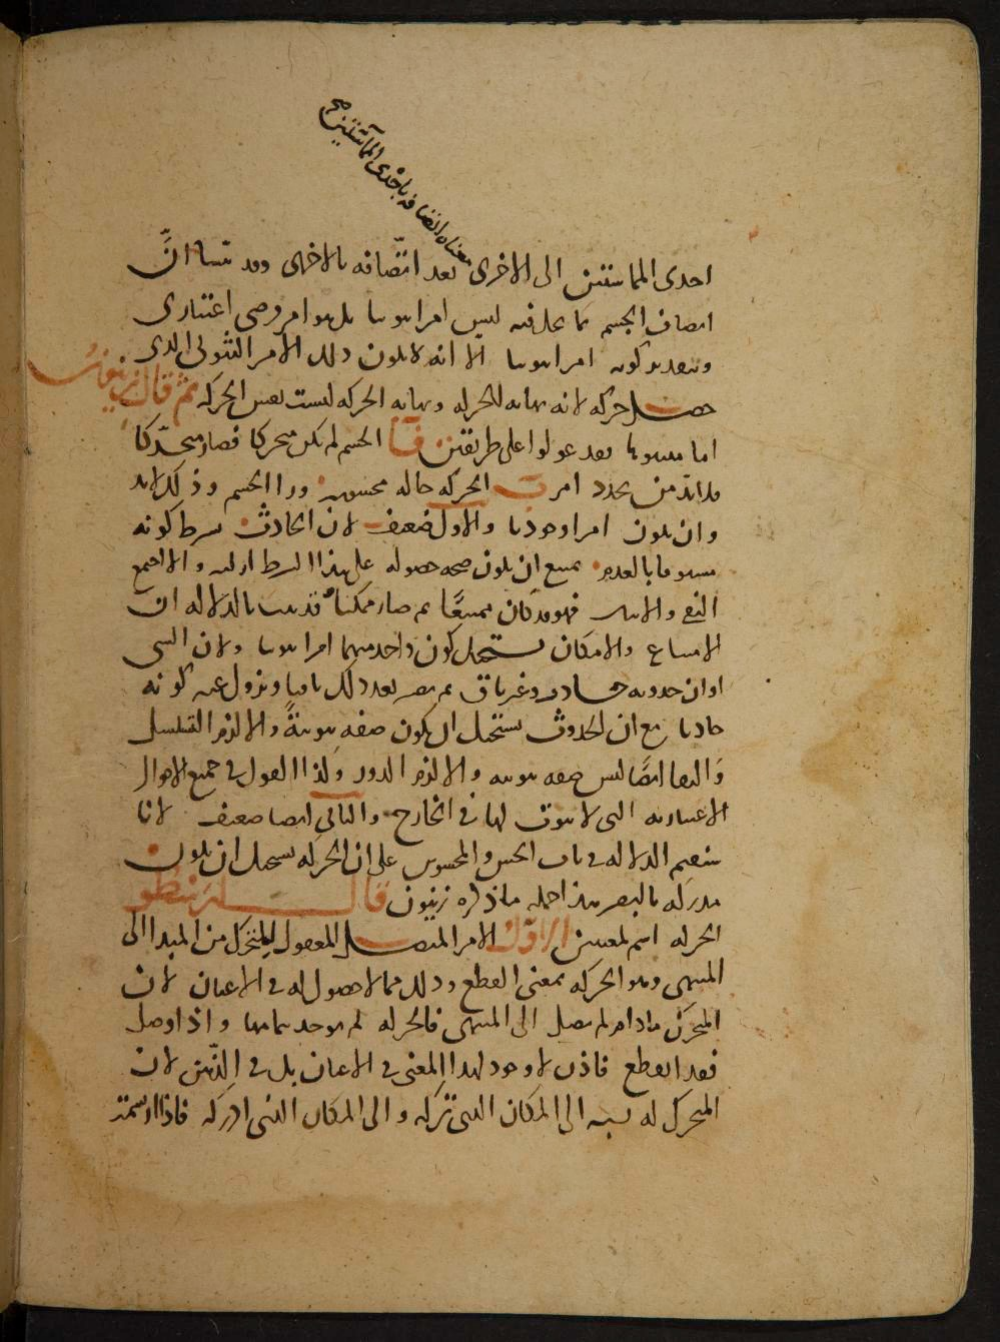 معناه اتصافه باحدى المماستين صح
احدى المماستين الى الاخرى بعد اتصافه بالاخرى وقد بينا انّ
اتصاف الجسم بما يحل فيه ليس امرا ثبوتيا بل هو امر وضى اعتبارى
وبتقدير كونه امرا ثبوتيا الا انه لا يكون ذلك الامر الثبوتى الذى
حصل حركة لانه نهاية للحركة ونهاية الحركة ليست نفس الحركة ثم قال زينون
اما مثبتوها فقد عولوا على طريقين فـآ الجسم لم يكن متحركا فصار متحركا
فلا بد من تجدد امر ب الحركة حالة محسوسة ورا الجسم وذلك لابد
وان يكون امرا وجوديا والاول ضعيف لان الحادث شرط كونه
مسبوقا بالعدم يمتنع ان يكون صحة حصوله على هذا الشرط ازلية والا اجتمع
النفى والاثبات فهو قد كان ممتنعًا ثم صار ممكنا قد ثبت بالدلالة ان
الامتناع والامكان يستحيل كون واحد منهما امرا ثبوتيا ولان الشى
اوان حدوثه حادث وغير باق ثم يصير بعد ذلك باقيا ويزول عنه كونه
حادثا مع ان الحدوث يستحيل ان يكون صفة ثبوتيةً والا لزم التسلسل
وَالبقا ايضًا ليس صفة ثبوتية والا لزم الدور وكذا القول فى جميع الاحوال
الاعتبارية التى لا ثبوت لها فى الخارج والثانى ايضا ضعيف لانا
سنقيم الدلالة فى باب الحس والمحسوس على ان الحركة يستحيل ان يكون
مدركة بالبصر هذا جملة ما ذكره زينون قال ارسطو
الحركة اسم لمعنيين الاوّل الامر المتصل المعقول للمتحرك من المبدا الى
المنتهى وهو الحركة بمعنى القطع وذلك مما لا حصول له فى الاعيان لان
المتحرك ما دام لم يصل الى المنتهى فالحركة لم يوجد بتمامها واذا وصل
فقد انقطع فاذن لا وجود لهذا المعنى فى الاعيان بل فى الذّهن لان
المتحرك له نسبة الى المكان الذى تركه والى المكان الذى ادركه فاذا ارتسمت